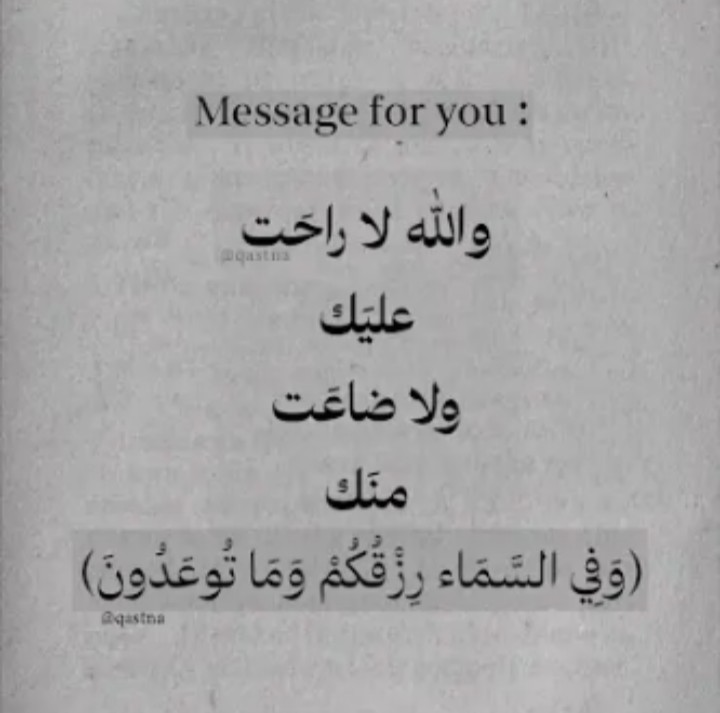 Message for you :
والله لا راحَت
@qastna
عليَك
ولا ضاعَت
منَك
(وَفِي السَّمَاء رِزْقُكُمْ وَمَا تُوعَدُونَ)
@qastna